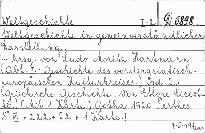 Weltgeschichte I-2. G 6898.
Weltgeschichte in gemeinverständlicher
Darstellung.
... hrsg. von Ludo Moritz Hartmann.
(Abt. I. Geschichte des
europäischen Kulturkreises.) Bd 2.
Griechische Geschichte. Von Ettore Ciccotti.
Mit 1 Karte. Gotha 1920 Perthes
8° + 222 + 1 Karte.